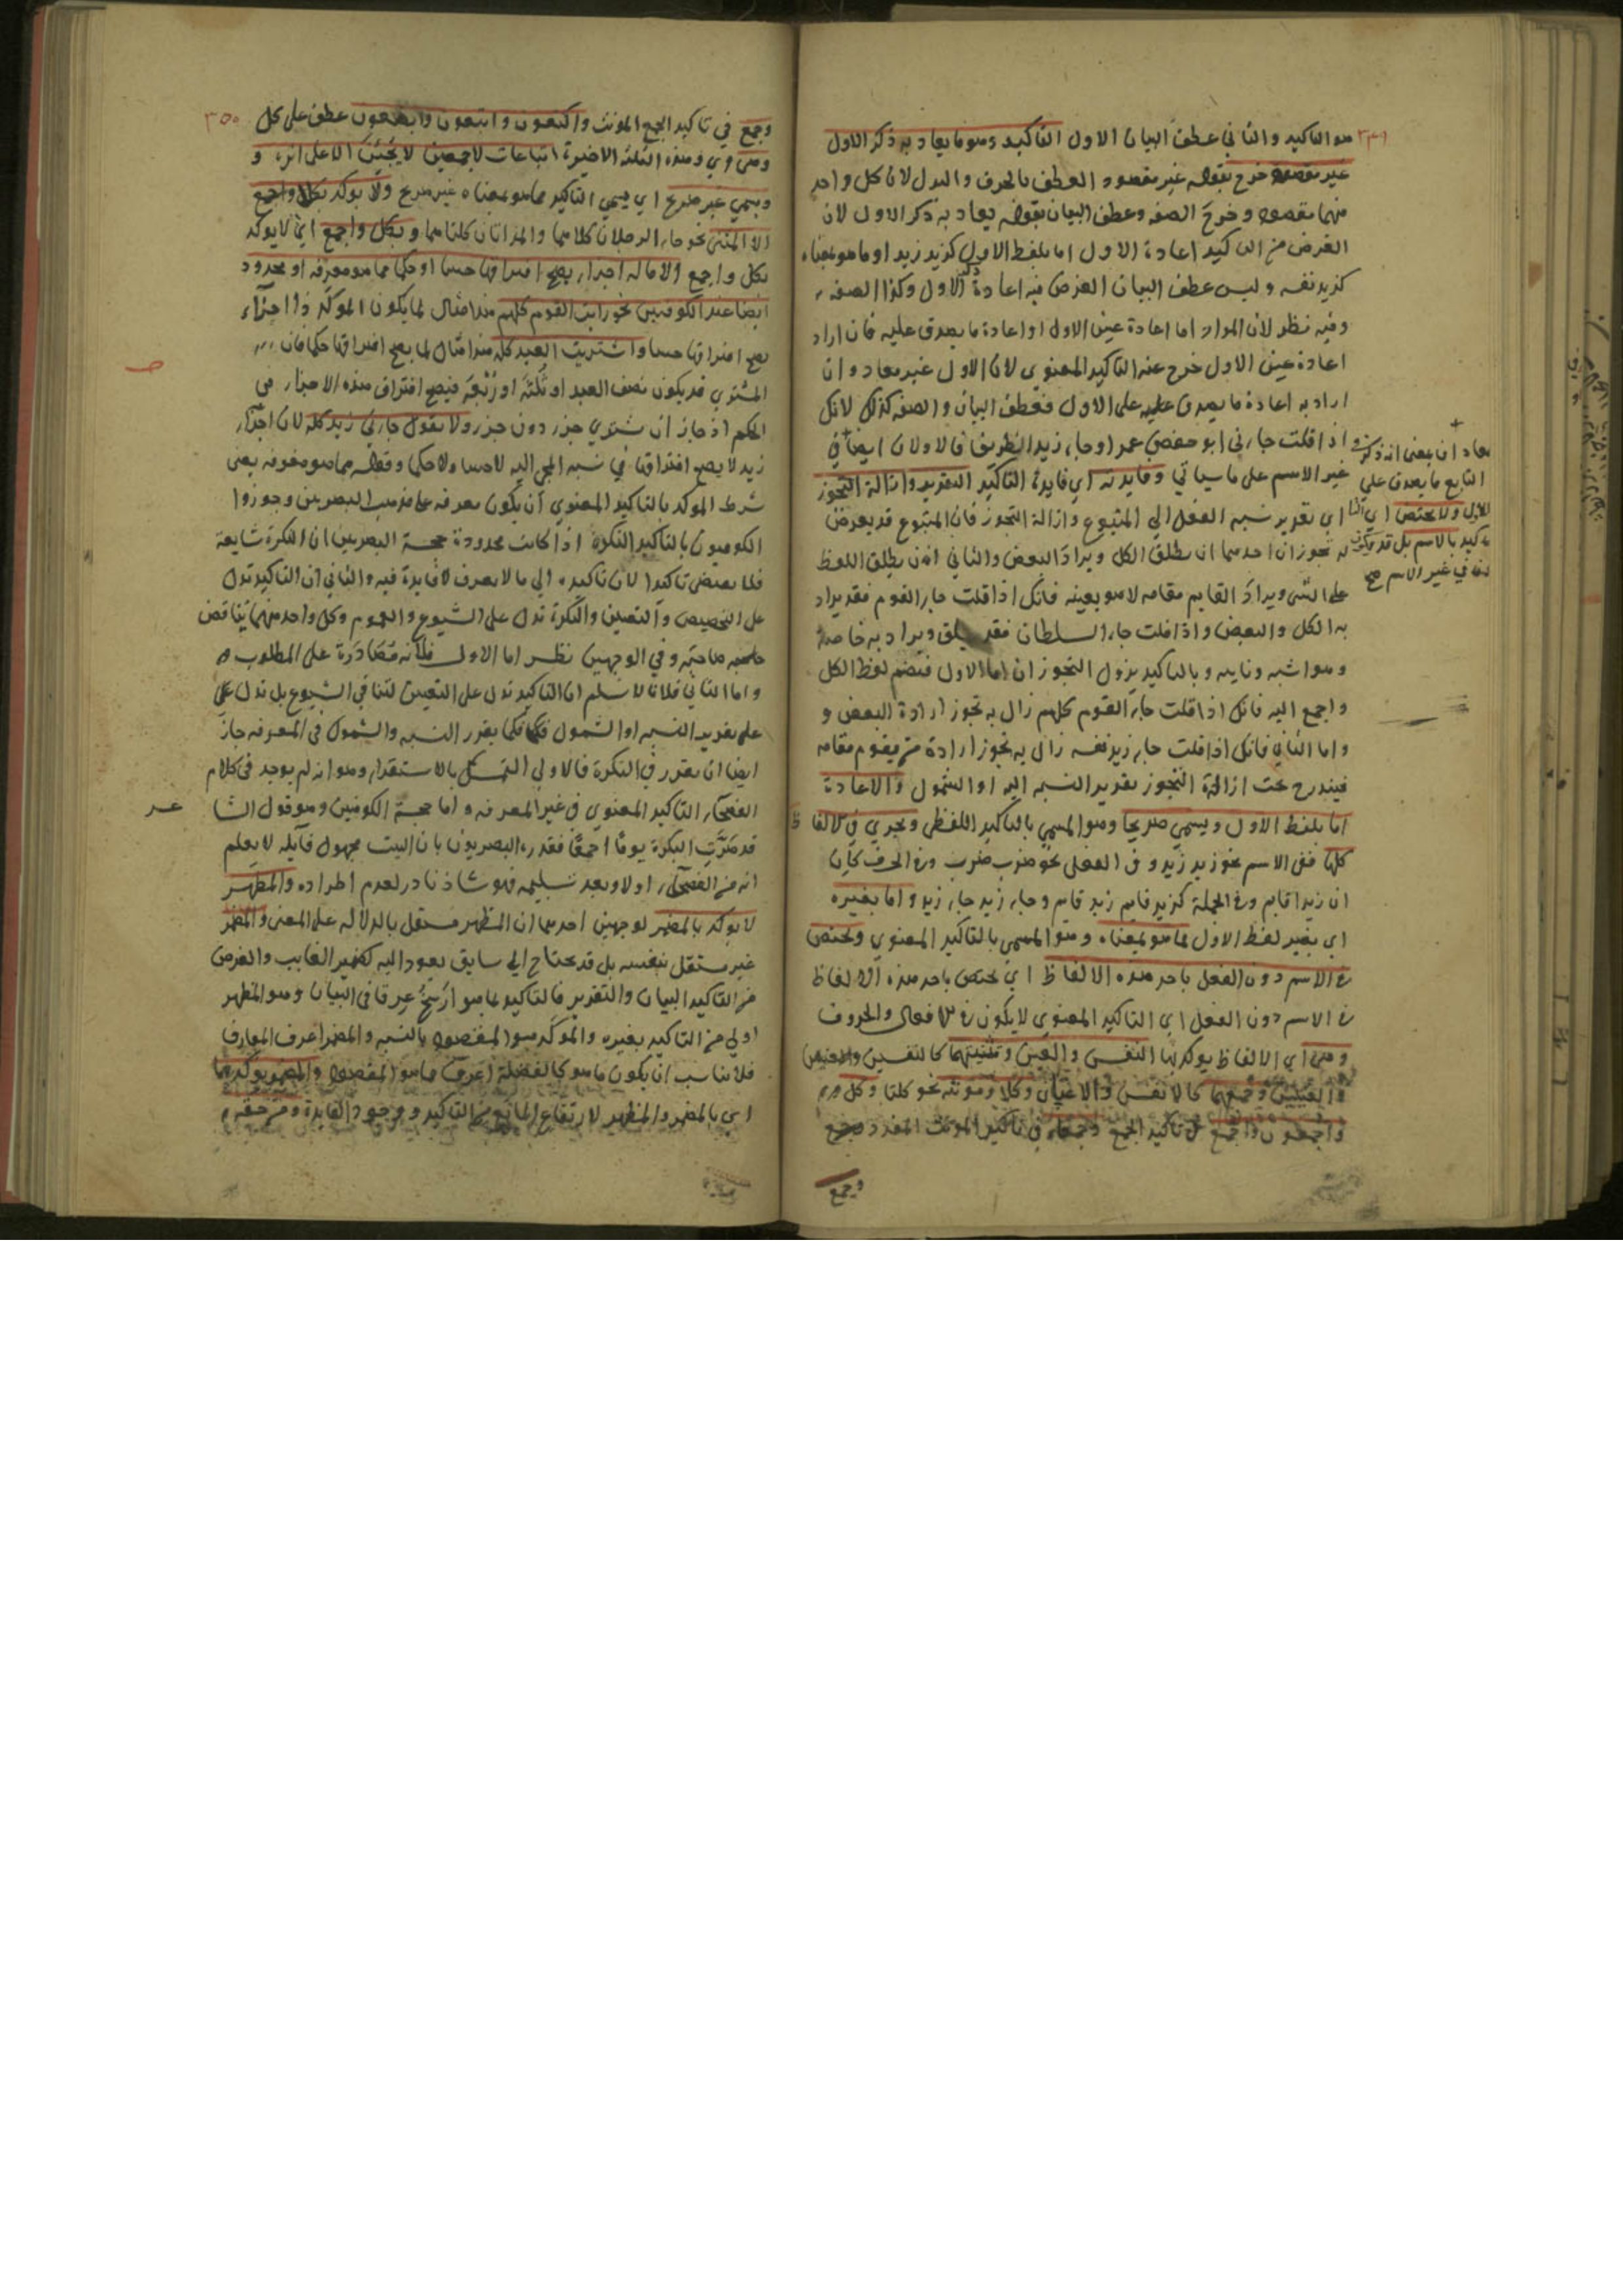 هو التاكيد والثاني عطف البيان الاول التاكيد وهو ما يعاد به ذكر الاول
غير مقصود خرج بقوله غير مقصود العطف بالحرف والبدل لان كل واحد
منهما مقصود وخرج الصفه وعطف البيان بقوله يعاد به ذكر الاول لان
الغرض من التاكيد اعادة الاول اما بلفظ الاول كزيد زيد او ما هو بمعناه
كزيد نفسه وليس عطف البيان الغرض فيه اعادة ذكر الاول وكذا الصفه
وفيه نظر لان المراد اما اعادة عين الاول او اعادة ما يصدق عليه فان اراد
اعادة عين الاول خرج عنه التاكيد المعنوي لان الاول غير معاد وان
اراد به اعادة ما يصدق عليه على الاول فعطف البيان والصفه كذلك لانك
اذا قلت جاءني ابو حفص عمر او جاء زيد الظريف فالاولان ايضا في
غير الاسم على ما سياتي وفايدته اي فايدة التاكيد التقرير وازالة التجوز
اي تقرير نسبه الفعل الي المتبوع وازالة التجوز فان المتبوع قد يعرض
له تجوز ان احدهما ان يطلق الكل ويراد البعض والثاني ان يطلق اللفظ
على الشى ويراد القايم مقامه لا هو بعينه فانك اذا قلت جاء القوم فقد يراد
به الكل والبعض واذا قلت جاء السلطان فقد يطلق ويراد به خاصة
وهو اشبه ونايبه وبالتاكيد يزول التجوز ان اما الاول فتضم لفظ الكل
واجمع اليه فانك اذا قلت جاء القوم كلهم زال به تجوز ارادة البعض و
واما الثاني فانك اذا قلت جاء زيد نفسه زال به تجوز ارادة من يقوم مقامه
فيندرج تحت ازالة التجوز تقرير النسبه اليه او الشمول والاعادة
اما بلفظ الاول ويسمي صريحا وهو المسمي بالتاكيد اللفظي ويجري في الالفاظ
كلها ففي الاسم نحو زيد زيد وفي الفعل نحو ضرب ضرب وفي الحرف كان
ان زيدا قايم وفي الجملة كزيد قايم زيد قايم وجاء زيد جاء زيد واما بغيره
اي بغير لفظ الاول مما هو بمعناه وهو المسمى بالتاكيد المعنوي ويختص
في الاسم دون الفعل باحد هذه الالفاظ اي يختص باحد هذه الالفاظ
في الاسم دون الفعل اي التاكيد المعنوي لا يكون في الافعال والحروف
وهى اي الالفاظ يوكد بها النفس والعين وتثنيتهما كالنفسين والعينين
وجمعهما كالانفس والاعيان وكلا ومونثه نحو كلتا وكل
واجمعون واجمع في تاكيد الجمع وجمعاء في تاكيد المونث المفرد وجمع
وجمع
معاد ان بمعنى انه ذكر
التابع ما يصدق على
الاول ولا يختص اي التا
كيد بالاسم بل قد يكون
فى غير الاسم صح
٣٥٠
وجمع في تاكيد الجمع المونث واكتعون وابتعون وابصعون عطف على كل
وهى اي وهذه الثلثه الاخيرة اتباعات لاجمعين لا يجئن الا على اثره و
ويسمي غير صريح اي يسمي التاكيد مما هو بمعناه غير صريح ولا يوكد بكل واجمع
الا المثنى نحو جاء الرجلان كلاهما والمراتان كلتاهما وبكل واجمع اي لا يوكد
بكل واجمع الا ما له اجزاء يصح افتراقها حسا او حكما مما هو معرفه او محدود
ايضا عند الكوفيين نحو رايت القوم كلهم هذا مثال لما يكون الموكد ذا اجزاء
يصح افتراقها حسا واشتريت العبد كله هذا مثال لما يصح افتراقها حكما فان
المشتري قد يكون نصف العبد او ثلثه او ربعه فيصح افتراق هذه الاجزاء في
الحكم اذ جاز ان يشتري جزء دون جزء ولا يقول جاءني زيد كله لان اجزاء
زيد لا يصح افتراقها في نسبه المجي اليه لا حسا ولا حكما وقوله مما هو معرفه يعنى
شرط الموكد بالتاكيد المعنوي ان يكون معرفه على مذهب البصريين وجوزوا
الكوفيون بالتاكيد النكرة اذا كانت محدودة حجة البصريين ان النكرة شايعة
فلا يقتضى تاكيدا لان تاكيده الي ما لا يعرف لا فايدة فيه والثاني ان التاكيد تدل
على التخصيص والتعيين والنكرة تدل على الشيوع والعموم وكل واحد منهما يناقض
صاحبه وفي الوجهين نظر اما الاول فلانه مصادرة على المطلوب
واما الثاني فلانا لا نسلم ان التاكيد تدل على التعيين لتنافي الشيوع بل تدل على
على تقرير النسبه او الشمول فكما يقرر النسبه والشمول في المعرفه جاز
ايضا ان يقرر في النكرة فالاولي التمسك بالاستقراء وهو انه لم يوجد في كلام
الفصحاء التاكيد المعنوي في غير المعرفه واما حجة الكوفيين وهو قول الشا
عر
قد صرت البكرة يوما اجمعا فقدره البصريون بان البيت مجهول قايله لا يعلم
انه من الفصحاء اولا وبعد تسليمه فهو شاذ نادر لعدم اطراده والمظهر
لا يوكد بالمضمر لوجهين احدهما ان المظهر مستقل بالدلاله على المعنى والمضمر
غير مستقل بنفسه بل قد يحتاج الي سابق يعود اليه كضمير الغايب والغرض
من التاكيد البيان والتقرير فالتاكيد بما هو ارسخ عرقا في البيان وهو المظهر
اولي من التاكيد بغيره والموكد هو المقصود بالنسبه والمضمر اعرف المعارف
فلا يناسب ان يكون ما هو كالفضلة اعرف مما هو المقصود والمضمر يوكد بهما
اي بالمضمر والمظهر لارتفاع المانع من التاكيد ووجود الفايدة ومن حقه